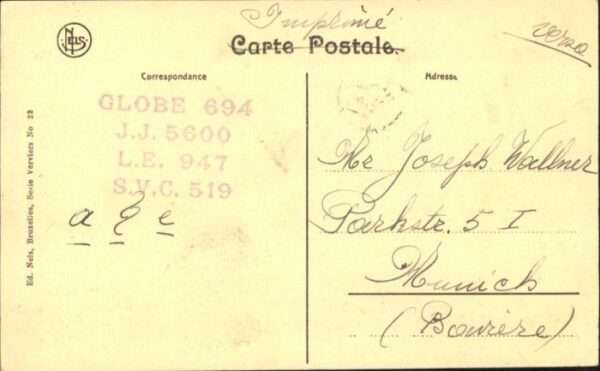 Imprimé
verso
NELS
Carte Postale.
Correspondance
Adresse
GLOBE 694
J.J. 5600
L.E. 947
S.V.C. 519
Mr Joseph Wallner
Parkstr. 5 I
Munich
(Bavière)
Ed. Nels, Bruxelles, Serie Verviers No 23